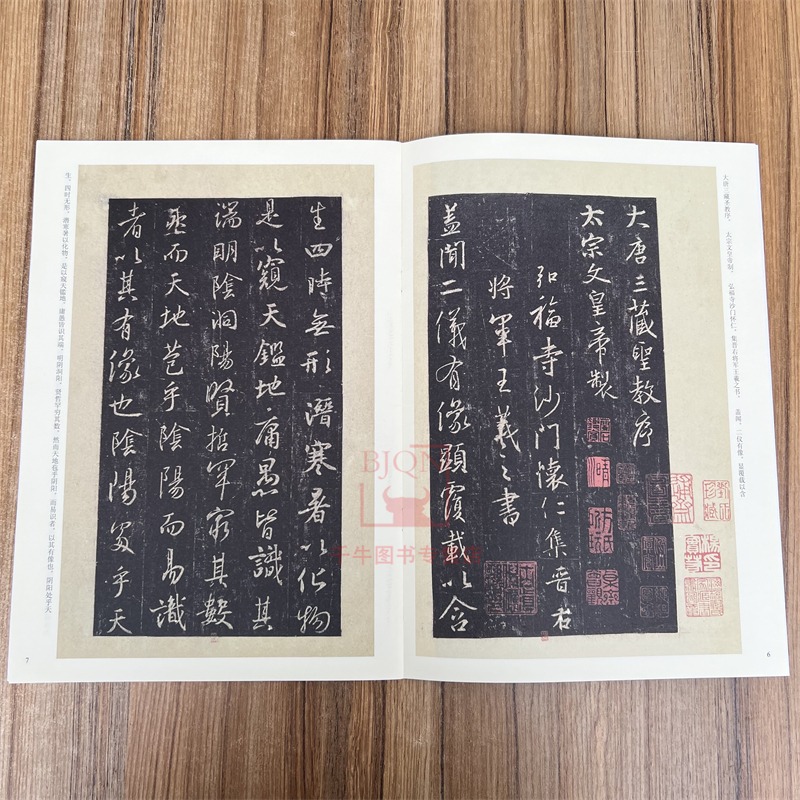 大唐三藏圣教序。 太宗文皇帝制。 弘福寺沙门怀仁，集晋右将军王羲之书。 盖闻，二仪有像，显覆载以含
大唐三藏聖教序
太宗文皇帝製
弘福寺沙門懷仁集晉右
將軍王羲之書
蓋聞二儀有像顯覆載以含
6
生四時無形潛寒暑以化物
是以窺天鑑地庸愚皆識其
端明陰洞陽賢哲罕窮其數
然而天地苞乎陰陽而易識
者以其有像也陰陽處乎天
生，四时无形，潜寒暑以化物。是以窥天鉴地，庸愚皆识其端；明阴洞阳，贤哲罕穷其数。然而天地苞乎阴阳，而易识者，以其有像也。阴阳处乎天
7
BJQN